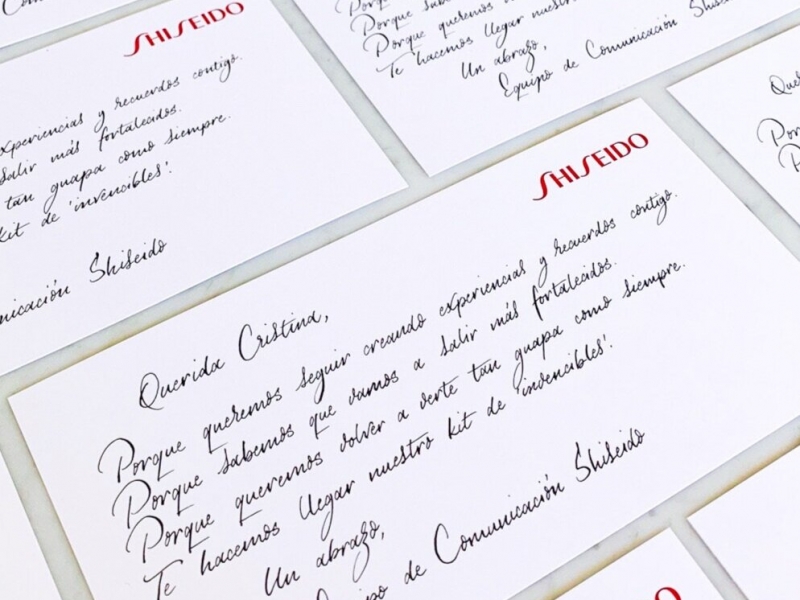 SHISEIDO
experiencias y recuerdos contigo.
salir más fortalecidos.
tan guapa como siempre.
kit de 'invencibles'.
Shiseido
Porque queremos
Te hacemos llegar nuestro
Un abrazo,
Equipo de Comunicación
SHISEIDO
Querida Cristina,
Porque queremos seguir creando experiencias y recuerdos contigo.
Porque sabemos que vamos a salir más fortalecidos.
Porque queremos volver a verte tan guapa como siempre.
Te hacemos llegar nuestro kit de 'invencibles'.
Un abrazo,
de Comunicación Shiseido